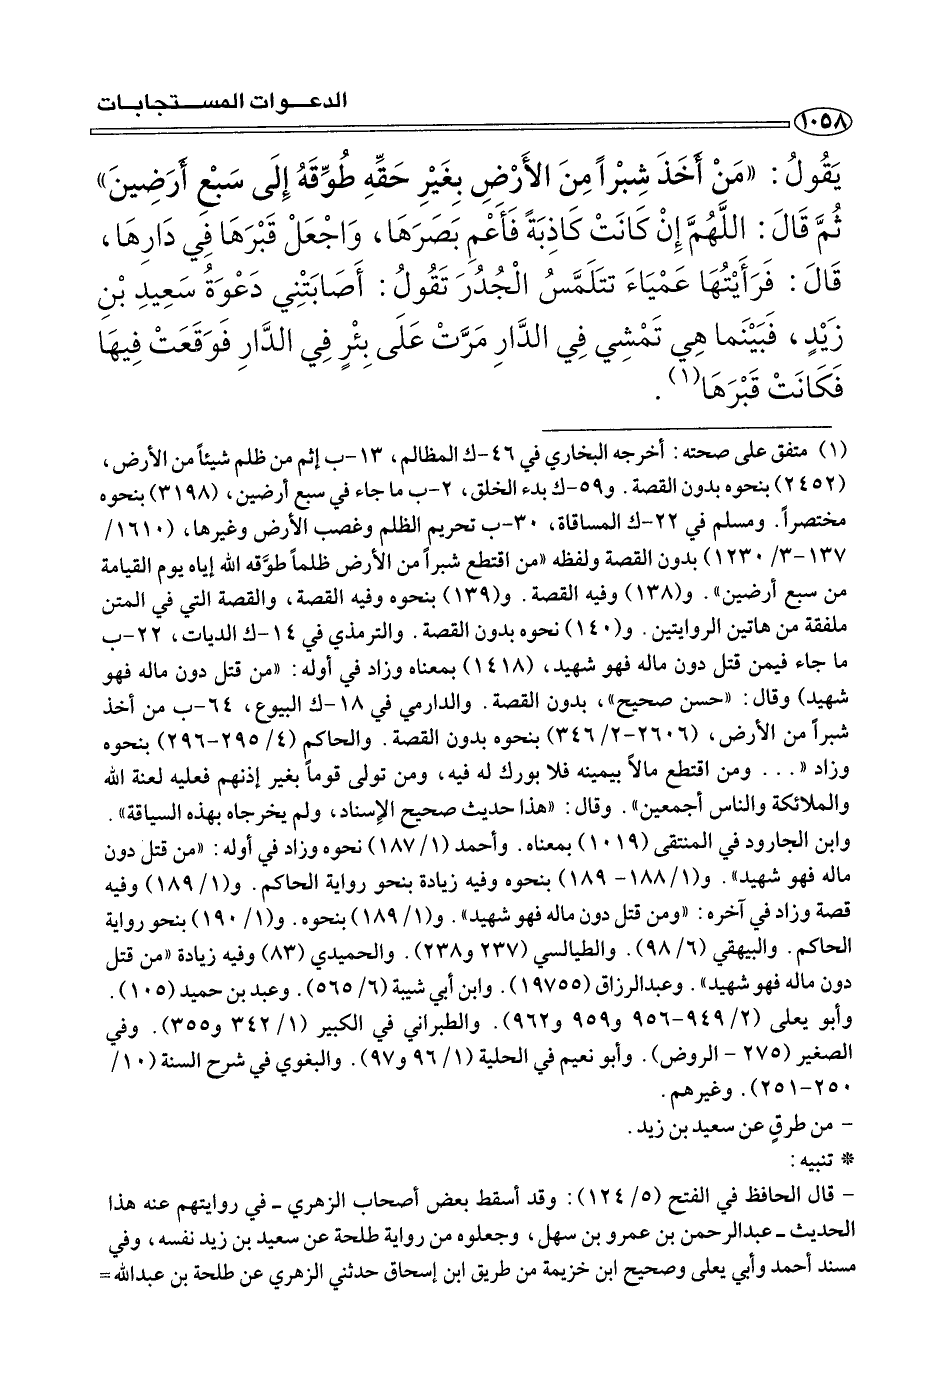 الدعوات المستجابات
١٠٥٨
يَقُولُ: «مَنْ أَخَذَ شِبْراً مِنَ الأَرْضِ بِغَيْرِ حَقِّهِ طُوِّقَهُ إِلَى سَبْعِ أَرَضِينَ»
ثُمَّ قَالَ: اللَّهُمَّ إِنْ كَانَتْ كَاذِبَةً فَأَعْمِ بَصَرَهَا، وَاجْعَلْ قَبْرَهَا فِي دَارِهَا،
قَالَ: فَرَأَيْتُهَا عَمْيَاءَ تَتَلَمَّسُ الْجُدُرَ تَقُولُ: أَصَابَتْنِي دَعْوَةُ سَعِيدِ بْنِ
زَيْدٍ، فَبَيْنَما هِي تَمْشِي فِي الدَّارِ مَرَّتْ عَلَى بِئْرٍ فِي الدَّارِ فَوَقَعَتْ فِيهَا
فَكَانَتْ قَبْرَهَا(١).
(١) متفق على صحته: أخرجه البخاري في ٤٦-ك المظالم، ١٣-ب إثم من ظلم شيئاً من الأرض،
(٢٤٥٢) بنحوه بدون القصة. و٥٩-ك بدء الخلق، ٢-ب ما جاء في سبع أرضين، (٣١٩٨) بنحوه
مختصراً. ومسلم في ٢٢-ك المساقاة، ٣٠-ب تحريم الظلم وغصب الأرض وغيرها، (١٦١٠/
١٣٧-٣/ ١٢٣٠) بدون القصة ولفظه «من اقتطع شبراً من الأرض ظلماً طوّقه الله إياه يوم القيامة
من سبع أرضين». و(١٣٨) وفيه القصة. و(١٣٩) بنحوه وفيه القصة، والقصة التي في المتن
ملفقة من هاتين الروايتين. و(١٤٠) نحوه بدون القصة. والترمذي في ١٤-ك الديات، ٢٢-ب
ما جاء فيمن قتل دون ماله فهو شهيد، (١٤١٨) بمعناه وزاد في أوله: «من قتل دون ماله فهو
شهيد) وقال: «حسن صحيح»، بدون القصة. والدارمي في ١٨-ك البيوع، ٦٤-ب من أخذ
شبراً من الأرض، (٢٦٠٦-٢/ ٣٤٦) بنحوه بدون القصة. والحاكم (٤/ ٢٩٥-٢٩٦) بنحوه
وزاد «... ومن اقتطع مالاً بيمينه فلا بورك له فيه، ومن تولى قوماً بغير إذنهم فعليه لعنة الله
والملائكة والناس أجمعين». وقال: «هذا حديث صحيح الإسناد، ولم يخرجاه بهذه السياقة».
وابن الجارود في المنتقى (١٠١٩) بمعناه. وأحمد (١/ ١٨٧) نحوه وزاد في أوله: «من قتل دون
ماله فهو شهيد». و(١/ ١٨٨- ١٨٩) بنحوه وفيه زيادة بنحو رواية الحاكم. و(١/ ١٨٩) وفيه
قصة وزاد في آخره: «ومن قتل دون ماله فهو شهيد». و(١/ ١٨٩) بنحوه. و(١/ ١٩٠) بنحو رواية
الحاكم. والبيهقي (٦/ ٩٨). والطيالسي (٢٣٧ و٢٣٨). والحميدي (٨٣) وفيه زيادة «من قتل
دون ماله فهو شهيد». وعبدالرزاق (١٩٧٥٥). وابن أبي شيبة (٦/ ٥٦٥). وعبد بن حميد (١٠٥).
وأبو يعلى (٢/ ٩٤٩-٩٥٦ و٩٥٩ و٩٦٢). والطبراني في الكبير (١/ ٣٤٢ و٣٥٥). وفي
الصغير (٢٧٥ - الروض). وأبو نعيم في الحلية (١/ ٩٦ و٩٧). والبغوي في شرح السنة (١٠/
٢٥٠-٢٥١). وغيرهم.
- من طرقٍ عن سعيد بن زيد.
* تنبيه:
- قال الحافظ في الفتح (٥/ ١٢٤): وقد أسقط بعض أصحاب الزهري ـ في روايتهم عنه هذا
الحديث ـ عبدالرحمن بن عمرو بن سهل، وجعلوه من رواية طلحة عن سعيد بن زيد نفسه، وفي
مسند أحمد وأبي يعلى وصحيح ابن خزيمة من طريق ابن إسحاق حدثني الزهري عن طلحة بن عبدالله =